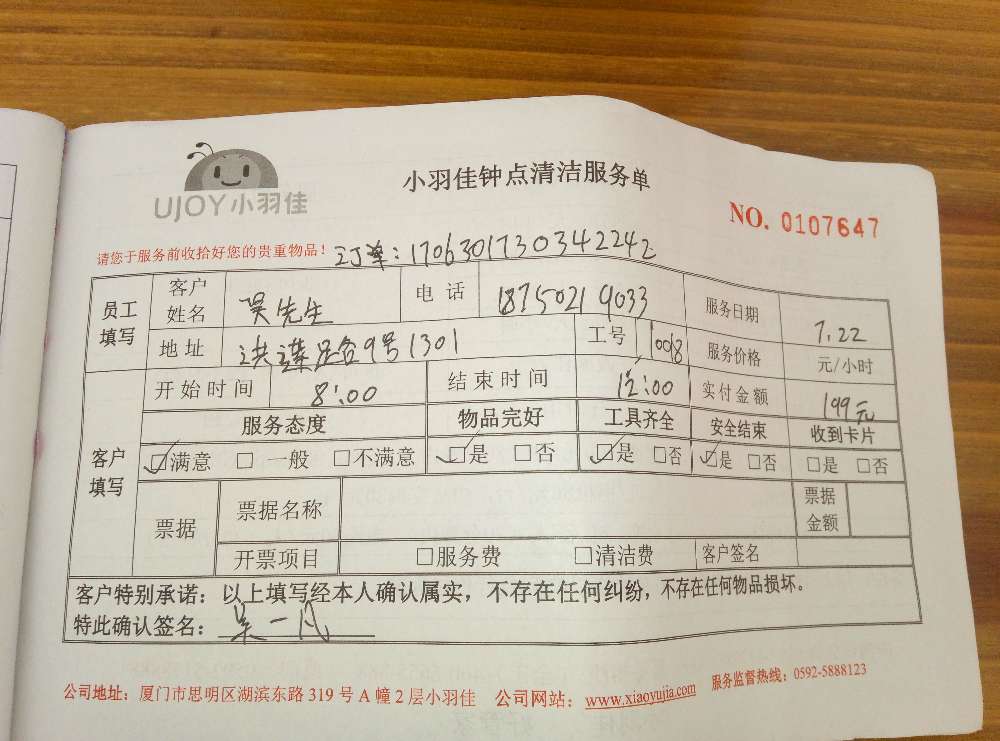 UJOY小羽佳
小羽佳钟点清洁服务单
NO. 0107647
请您于服务前收拾好您的贵重物品! 订单:1706301730342242
员工填写 客户姓名 吴先生 电话 18750219033 服务日期 7.22
地址 洪莲 9号1301 工号 0098 服务价格 元/小时
客户填写 开始时间 8:00 结束时间 12:00 实付金额 199元
服务态度 物品完好 工具齐全 安全结束 收到卡片
☑满意 □一般 □不满意 ☑是 □否 ☑是 □否 ☑是 □否 □是 □否
票据 票据名称 票据金额
开票项目 □服务费 □清洁费 客户签名
客户特别承诺:以上填写经本人确认属实,不存在任何纠纷,不存在任何物品损坏.
特此确认签名: 吴一凡
公司地址:厦门市思明区湖滨东路 319 号 A 幢 2 层小羽佳 公司网站:www.xiaoyujia.com 服务监督热线:0592-5888123